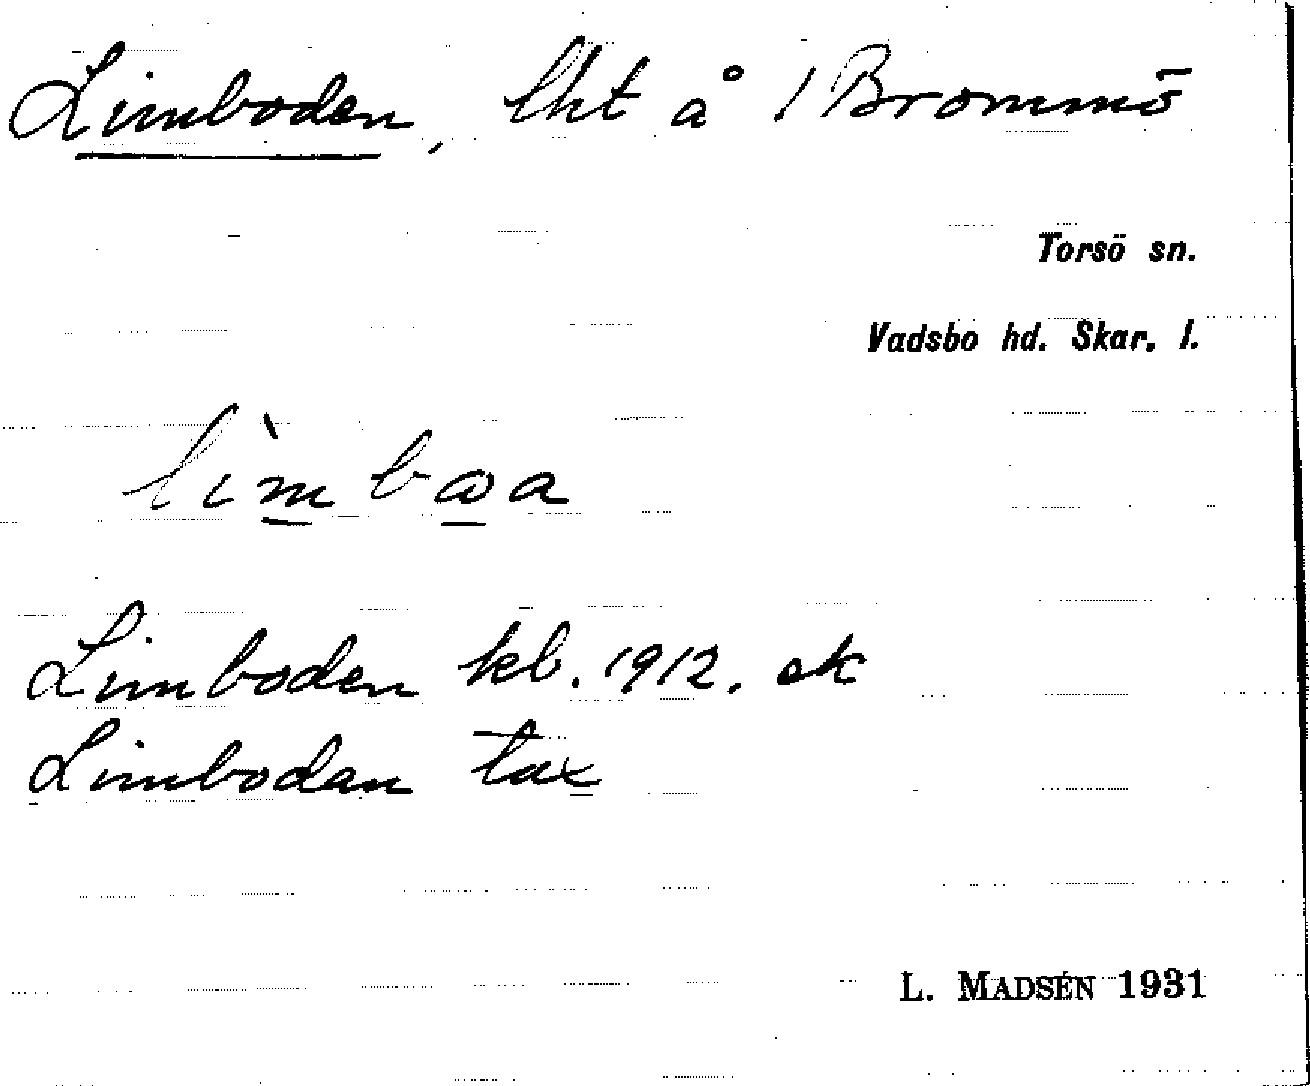 Limboden, lht å 1 Brommö
Torsö sn.
Vadsbo hd. Skar. l.
Limboden kb. 1912. ek
Limbodan tax
L. MADSÉN 1931